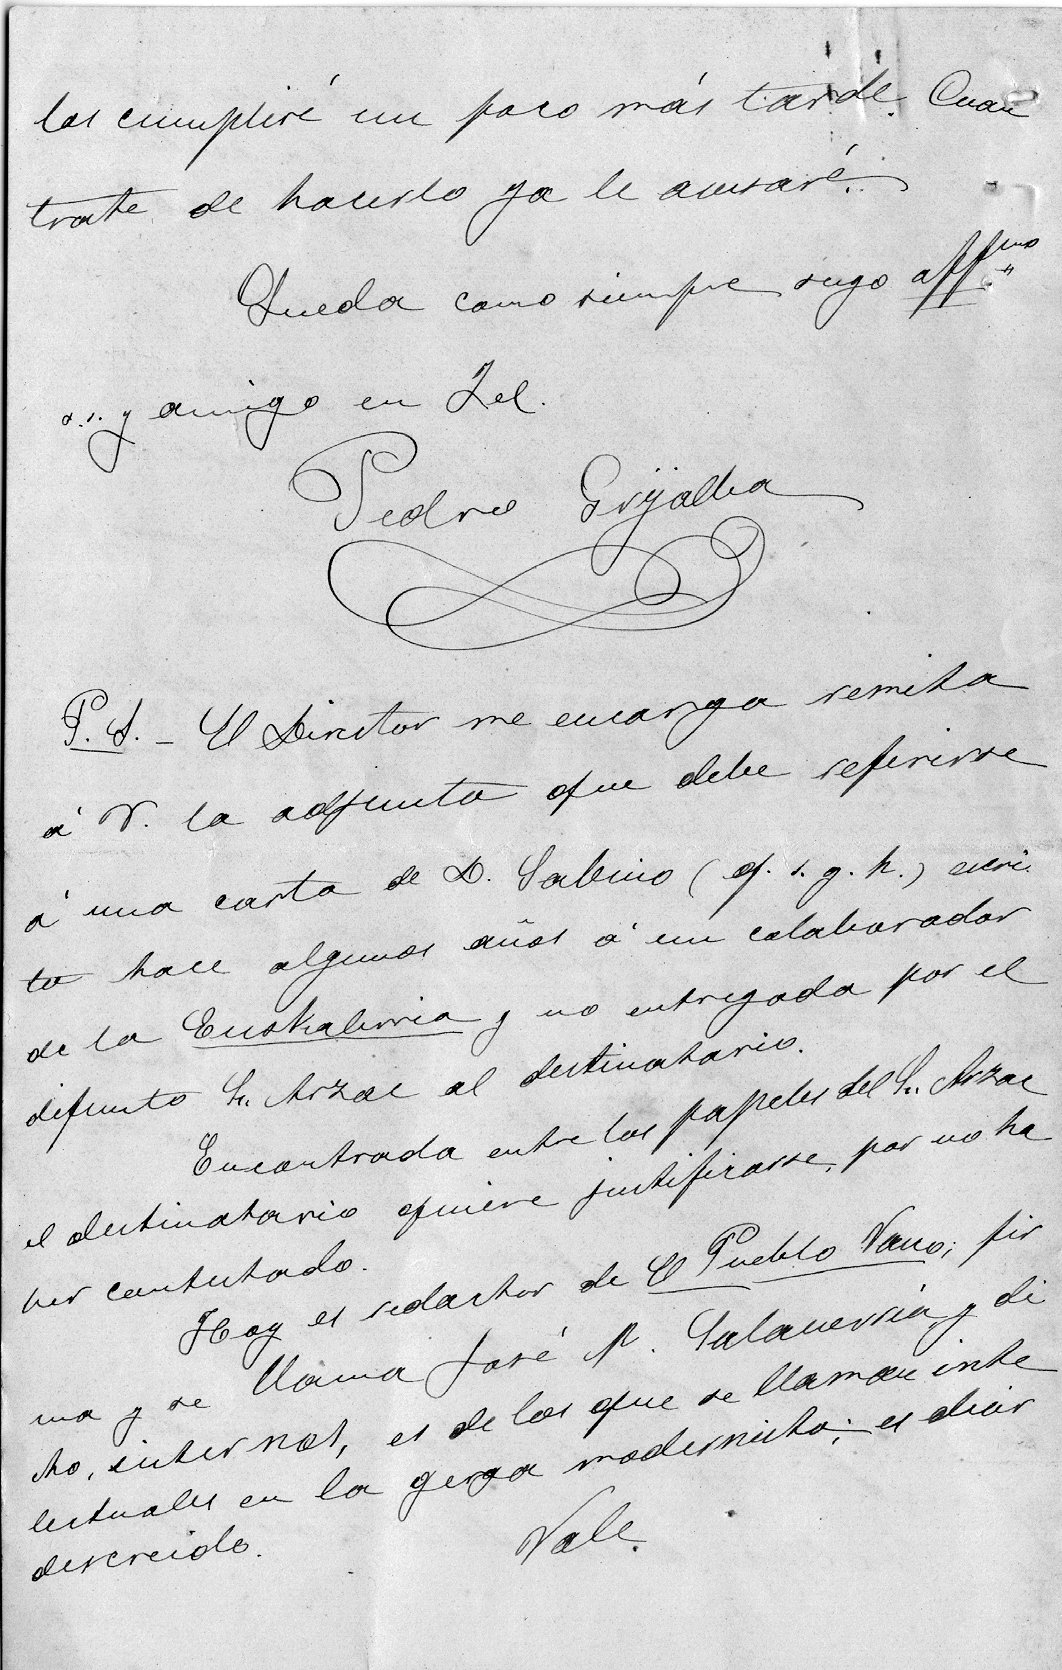 los cumpliré un poco más tarde. Cuan
trate de hacerlo ya le avisaré.
Queda como siempre suyo affmo
s.s. y amigo en Jel.
Pedro Grijalba
P.S. - El Director me encarga remita
á V. la adjunta que debe referirse
á una carta de D. Sabino (q. s. g. h.) escri
ta hace algunos años á un colaborador
de la Euskalerria y no entregada por el
difunto Sr. Arzac al destinatario.
Encontrada entre los papeles del Sr. Arzac
el destinatario quiere justificarse, por no ha
ber contestado.
Hoy es redactor de El Pueblo Vasco; fir
ma y se llama José M. Salaverría y di
cho, inter nos, es de los que se llaman inte
lectuales en la gerga modernista; es decir
descreido.
Vale.